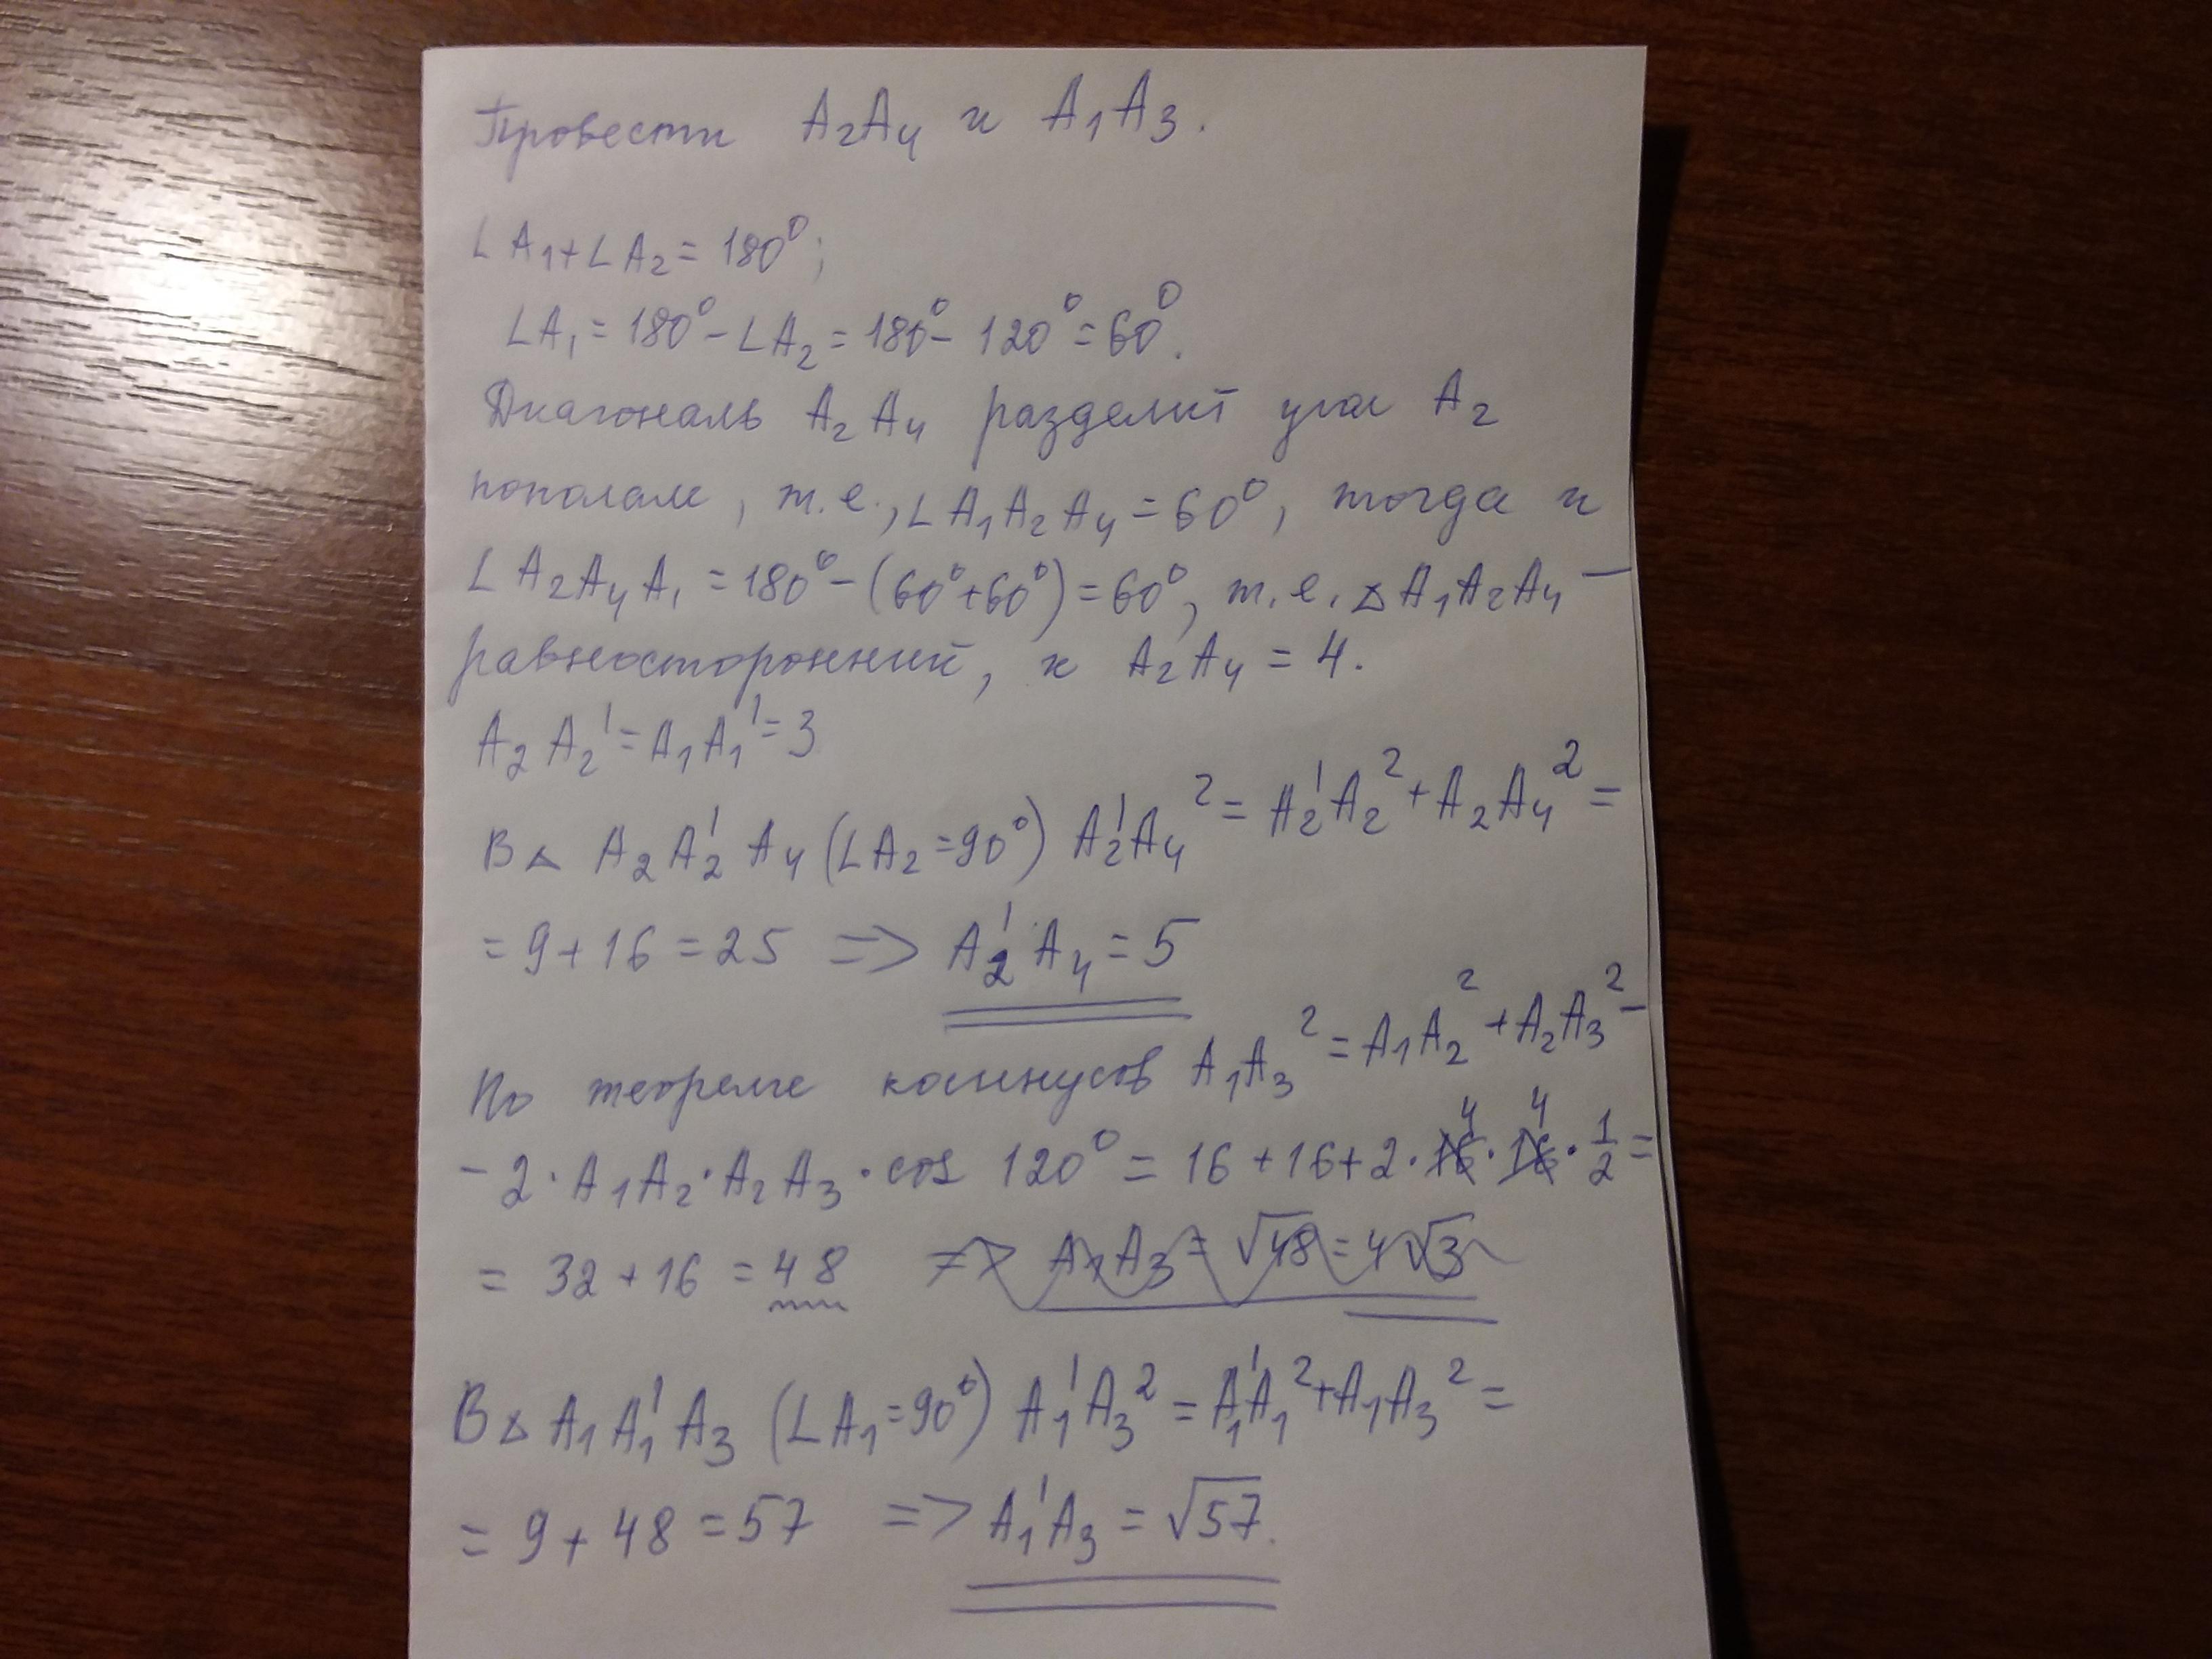 Провести A₂A₄ и A₁A₃.
∠A₁+∠A₂=180⁰;
∠A₁=180⁰-∠A₂=180⁰-120⁰=60⁰.
Диагональ A₂A₄ разделит угол A₂
пополам, т.е., ∠A₁A₂A₄=60⁰, тогда и
∠A₂A₄A₁=180⁰-(60⁰+60⁰)=60⁰, т.е. △A₁A₂A₄ -
равносторонний, и A₂A₄=4.
A₂A₂'=A₁A₁'=3
В △ A₂A₂'A₄ (∠A₂=90⁰) A₂'A₄²=A₂'A₂²+A₂A₄²=
=9+16=25 => A₂'A₄=5
По теореме косинусов A₁A₃²=A₁A₂²+A₂A₃²-
-2·A₁A₂·A₂A₃·cos 120⁰=16+16+2·4·4·1/2=
=32+16=48 => A₁A₃=√48=4√3
В △ A₁A₁'A₃ (∠A₁=90⁰) A₁'A₃²=A₁'A₁²+A₁A₃²=
=9+48=57 => A₁'A₃=√57.